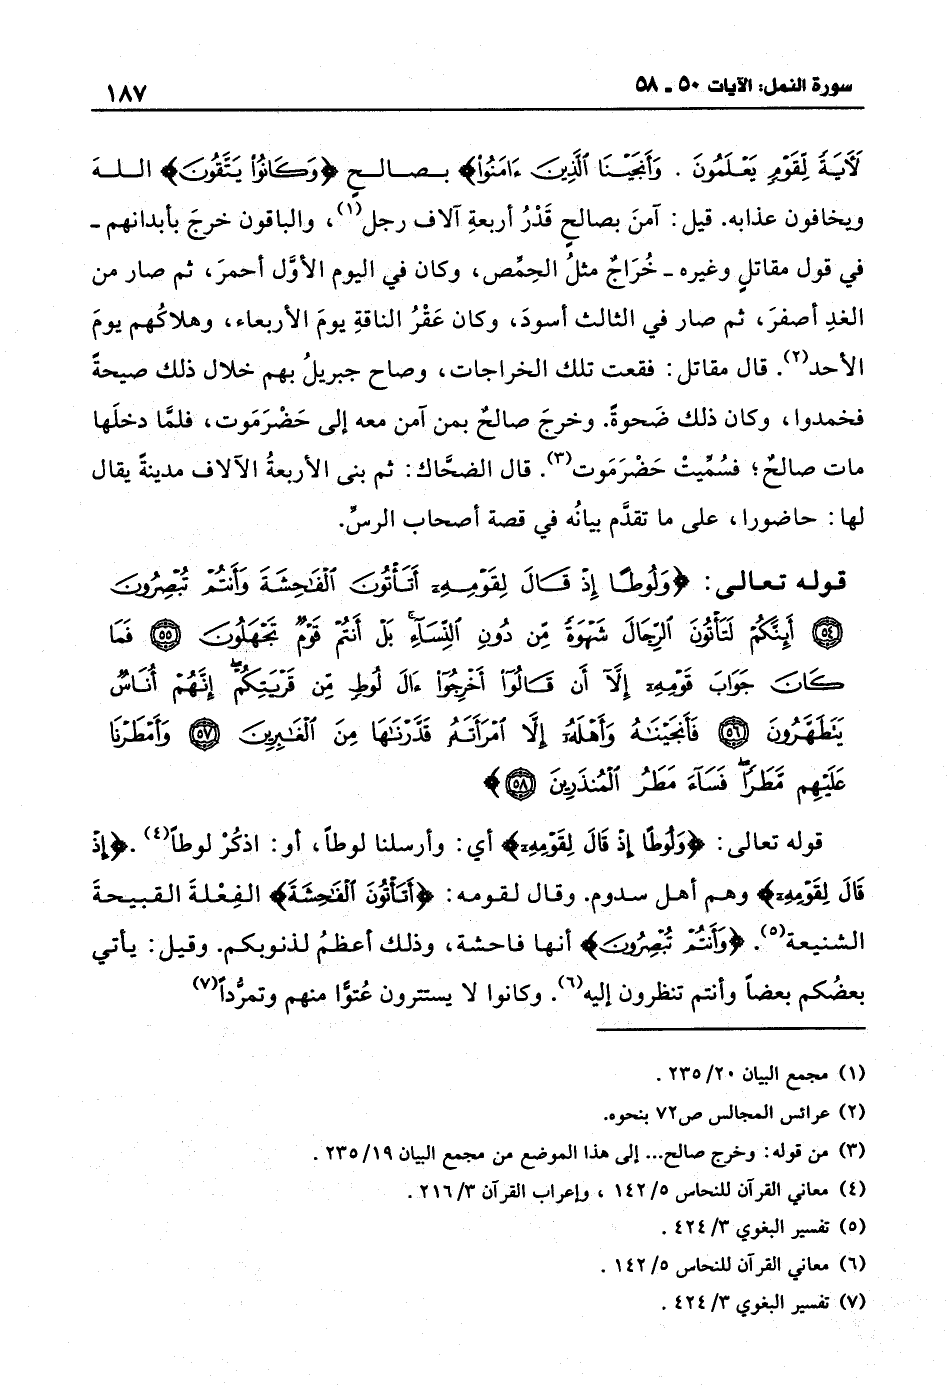 سورة النمل: الآيات ٥٠ ـ ٥٨
١٨٧
لَآيَةً لِّقَوْمٍ يَعْلَمُونَ . وَأَنجَيْنَا الَّذِينَ ءَامَنُواْ﴾ بـصـالـحٍ ﴿وَكَانُواْ يَتَّقُونَ﴾ الـلـهَ
ويخافون عذابه. قيل: آمنَ بصالحٍ قَدْرُ أربعةِ آلاف رجل(١)، والباقون خرجَ بأبدانهم ـ
في قول مقاتلٍ وغيره ـ خُرَاجٌ مثلُ الحِمِّص، وكان في اليوم الأوَّل أحمرَ، ثم صار من
الغدِ أصفرَ، ثم صار في الثالث أسودَ، وكان عَقْرُ الناقةِ يومَ الأربعاء، وهلاكُهم يومَ
الأحد(٢). قال مقاتل: فقعت تلك الخراجات، وصاح جبريلُ بهم خلال ذلك صيحةً
فخمدوا، وكان ذلك ضَحوةً. وخرجَ صالحٌ بمن آمن معه إلى حَضْرَمَوت، فلمَّا دخلَها
مات صالحٌ؛ فسُمِّيتْ حَضْرَمَوت(٣). قال الضحَّاك: ثم بنى الأربعةُ الآلاف مدينةً يقال
لها: حاضورا، على ما تقدَّم بيانُه في قصة أصحاب الرسِّ.
قوله تعالى: ﴿وَلُوطًا إِذْ قَالَ لِقَوْمِهِۦٓ أَتَأْتُونَ الْفَٰحِشَةَ وَأَنتُمْ تُبْصِرُونَ
۝٥٤ أَئِنَّكُمْ لَتَأْتُونَ الرِّجَالَ شَهْوَةً مِّن دُونِ النِّسَآءِ ۚ بَلْ أَنتُمْ قَوْمٌ تَجْهَلُونَ ۝٥٥ فَمَا
كَانَ جَوَابَ قَوْمِهِۦٓ إِلَّآ أَن قَالُوٓاْ أَخْرِجُوٓاْ ءَالَ لُوطٍ مِّن قَرْيَتِكُمْ ۖ إِنَّهُمْ أُنَاسٌ
يَتَطَهَّرُونَ ۝٥٦ فَأَنجَيْنَٰهُ وَأَهْلَهُۥٓ إِلَّا امْرَأَتَهُۥ قَدَّرْنَٰهَا مِنَ الْغَٰبِرِينَ ۝٥٧ وَأَمْطَرْنَا
عَلَيْهِم مَّطَرًا ۖ فَسَآءَ مَطَرُ الْمُنذَرِينَ ۝٥٨﴾
قوله تعالى: ﴿وَلُوطًا إِذْ قَالَ لِقَوْمِهِۦٓ﴾ أي: وأرسلنا لوطاً، أو: اذكُرْ لوطاً(٤). ﴿إِذْ
قَالَ لِقَوْمِهِۦٓ﴾ وهم أهل سدوم. وقال لقومه: ﴿أَتَأْتُونَ الْفَٰحِشَةَ﴾ الفِعْلةَ القبيحةَ
الشنيعة(٥). ﴿وَأَنتُمْ تُبْصِرُونَ﴾ أنها فاحشة، وذلك أعظمُ لذنوبكم. وقيل: يأتي
بعضُكم بعضاً وأنتم تنظرون إليه(٦). وكانوا لا يستترون عُتوًّا منهم وتمرُّداً(٧)
(١) مجمع البيان ٢٠/ ٢٣٥ .
(٢) عرائس المجالس ص٧٢ بنحوه.
(٣) من قوله: وخرج صالح... إلى هذا الموضع من مجمع البيان ١٩/ ٢٣٥ .
(٤) معاني القرآن للنحاس ٥/ ١٤٢ ، وإعراب القرآن ٣/ ٢١٦ .
(٥) تفسير البغوي ٣/ ٤٢٤ .
(٦) معاني القرآن للنحاس ٥/ ١٤٢ .
(٧) تفسير البغوي ٣/ ٤٢٤ .